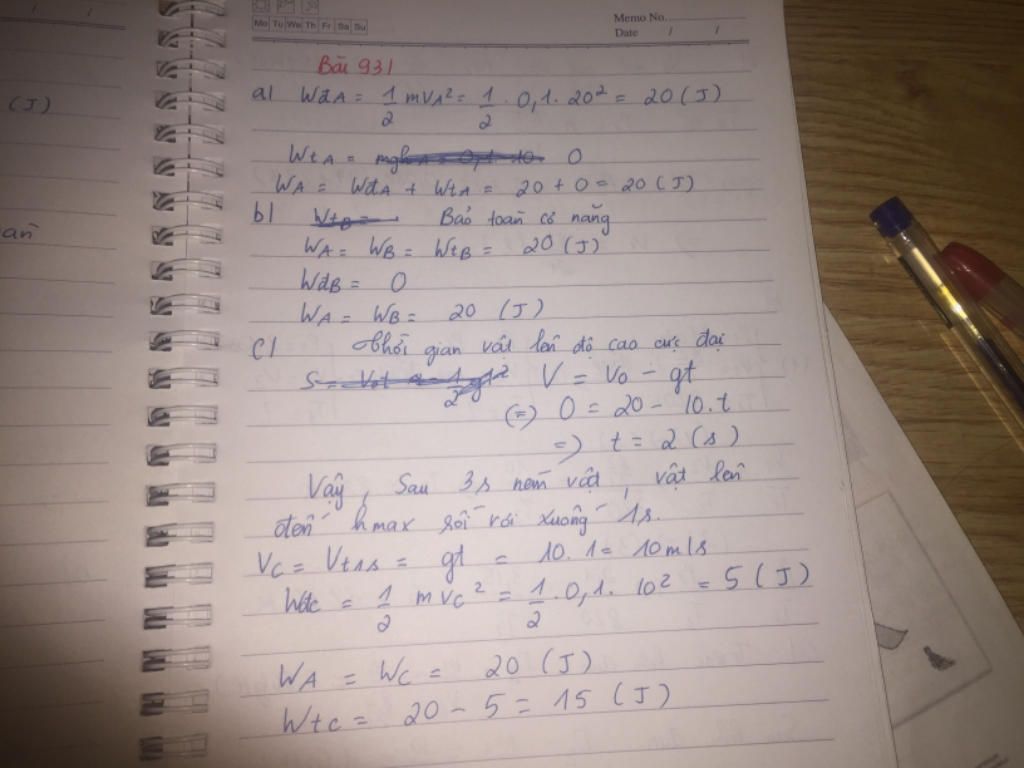 Mo Tu We Th Fr Sa Su
Memo No.
Date / /
(J)
Bài 93/
a/ WđA = 1/2 mVA² = 1/2 . 0,1 . 20² = 20 (J)
WtA = 0
WA = WđA + WtA = 20 + 0 = 20 (J)
b/ Bảo toàn cơ năng
WA = WB = WtB = 20 (J)
WđB = 0
WA = WB = 20 (J)
c/ Thời gian vật lên độ cao cực đại
V = V0 - gt
(=) 0 = 20 - 10.t
=) t = 2 (s)
Vậy, Sau 3s ném vật, vật lên
đến hmax rồi rơi xuống 1s.
VC = Vt1s = gt = 10.1 = 10 m/s
Wđc = 1/2 mVC² = 1/2 . 0,1 . 10² = 5 (J)
WA = WC = 20 (J)
Wtc = 20 - 5 = 15 (J)